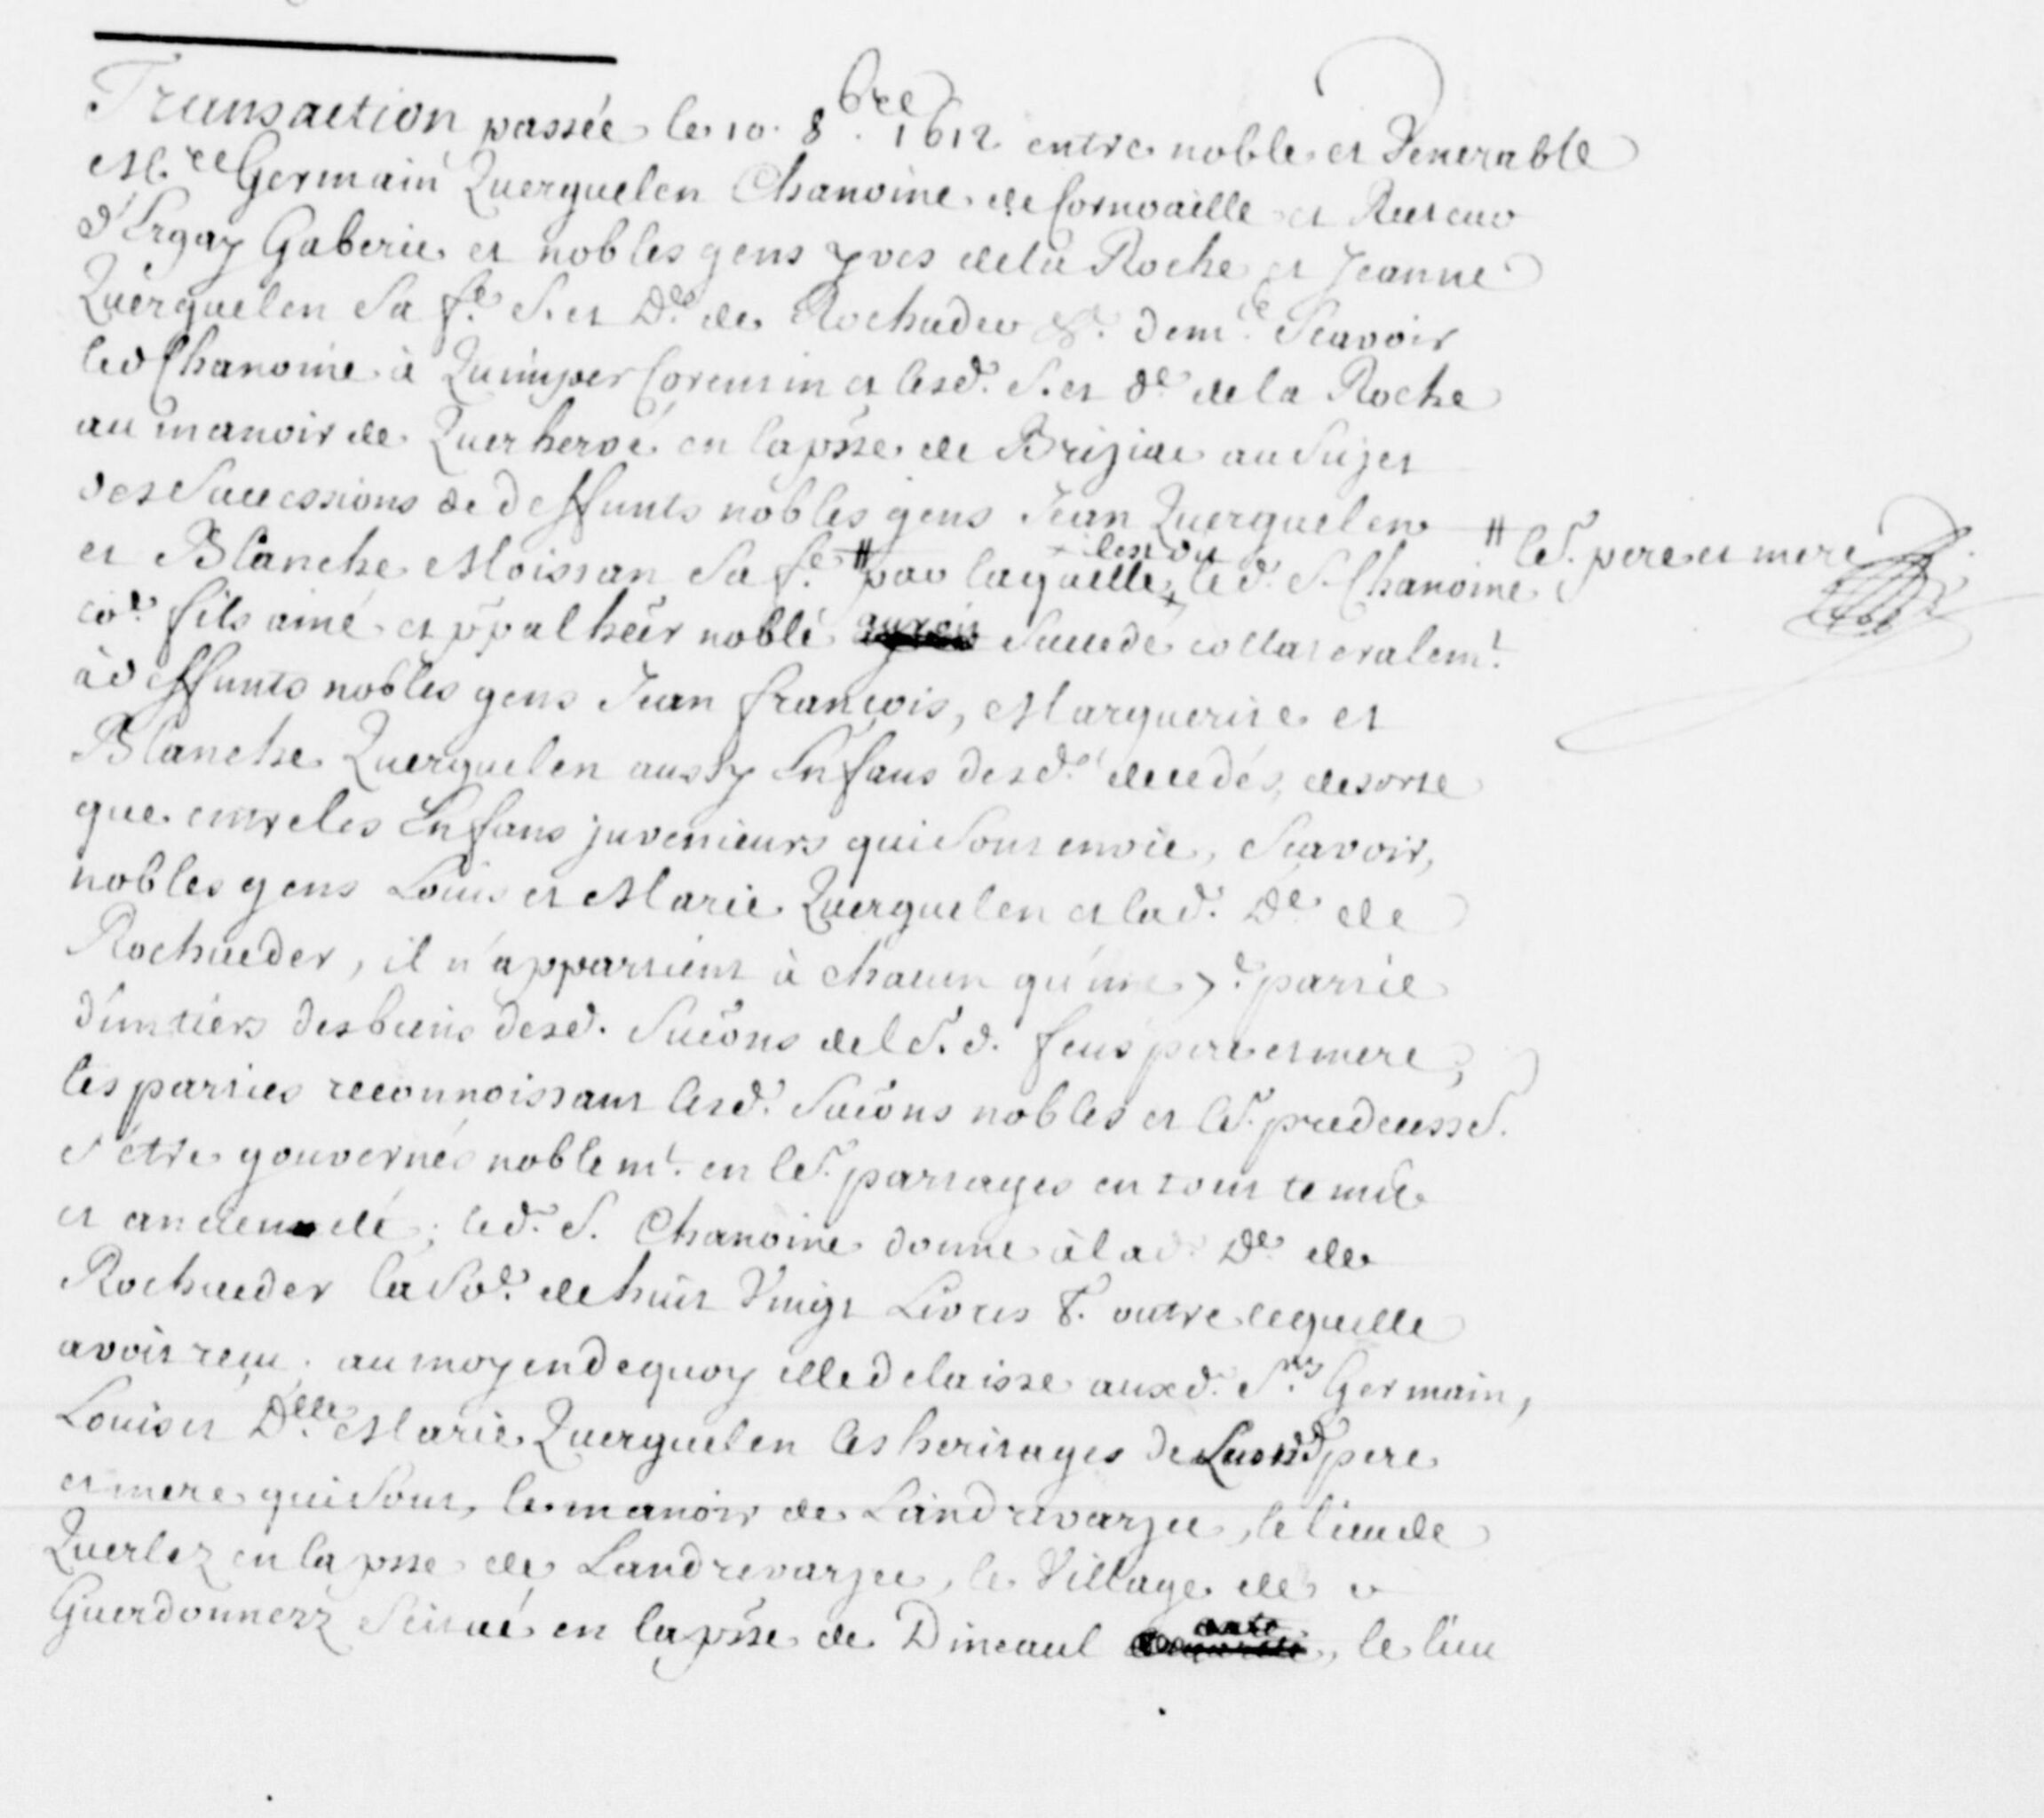 Transaction passée le 10. 8.bre 1612 entre noble et Venerable
M.re Germain Querguelen Chanoine de Cornoaille et Recteur
d'Ergay Gaberie et nobles gens yves dela Roche et Jeanne
Querguelen Sa f.e S. et D.e de Rochuder &.a dem.t Scavoir
led Chanoine à Quimper Corentin et lesd. S. et d.e de la Roche
au manoir de Querhervé en la psse de Briziac au Sujet
des Successions de deffunts nobles gens Jean Querguelen
et Blanche Moissan Sa f.e # par laquelle + led. S. Chanoine
+ il est dit
# leS. pere et mere
cõe fils ainé et p̃pal heir noble Succede collateralem.t
à deffunts nobles gens Jean françois, Marguerite et
Blanche Querguelen aussy Enfans desd. decedés, desorte
que entre les Enfans juvenieurs qui Sont envie, Scavoir,
nobles gens Louis et Marie Querguelen et lad. D.e de
Rochueder, il n'appartient à chacun qu'une 7.e partie
d'un tiers des biens desd. Sucõns de lS. d. feus pere et mere,
les parties reconnoissant lesd. Sucõns nobles et leS. predecessS.
S'étre gouvernés noblem.t en leS. partages en tout temps
et ancienneté; led. S. Chanoine donne à lad. D.e de
Rochueder la Sõe de huit Vingt Livres t. outre lequelle
avoit reçu. au moyen dequoy elle delaisse auxd. S.rs Germain,
Louis et D.lle Marie Querguelen les heritages de Leursd pere
et mere qui Sont, le manoir de Landrevarzec, le lieu de
Querlez en la psse de Landrevarzec, le Village de
Guerdonnerz Scitué en la psse de Dineaul, le lieu